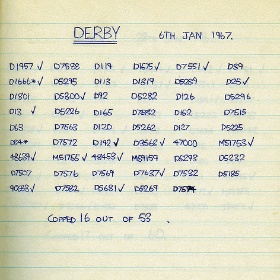 DERBY 6TH JAN 1967.
D1957 ✓ D7588 D119 D1675 ✓ D7551 ✓ D89
D1666* ✓ D5295 D113 D1819 D5289 D25 ✓
D1801 D5300 ✓ D92 D5282 D126 D5296
D13 ✓ D5226 D165 D7582 D152 D7515
D63 D7563 D120 D5262 D127 D5225
D84* D7572 D192 ✓ D3568 ✓ 47000 M51753 ✓
48639 ✓ M51755 ✓ 48453 ✓ M89159 D5293 D5232
D7507 D7576 D7569 D7637 ✓ D7532 D5185
90233 ✓ D7532 D5681 ✓ D5269
COPPED 16 OUT OF 53.